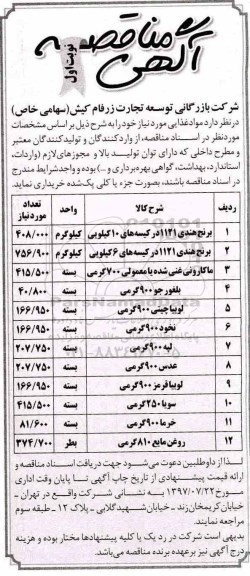 آگهی مناقصه
نوبت اول
شرکت بازرگانی توسعه تجارت زرفام کیش (سهامی خاص)
در نظر دارد مواد غذایی مورد نیاز خود را به شرح ذیل بر اساس مشخصات
مورد نظر در اسناد مناقصه، از وارد کنندگان و تولید کنندگان معتبر
و مطرح داخلی که دارای توان تولید بالا و مجوزهای لازم (واردات،
استاندارد، بهداشت، گواهی بهره‌برداری و ...) بوده و واجد شرایط مندرج
در اسناد مناقصه باشند، بصورت جزء یا کلی یکدک خریداری نماید.
ردیف شرح کالا واحد تعداد مورد نیاز
۱ برنج هندی ۱۱۲۱ در کیسه‌های ۱۰ کیلویی کیلوگرم ۴۰۸/۰۰۰
۲ برنج هندی ۱۱۲۱ در کیسه‌های ۶ کیلویی کیلوگرم ۷۵۶/۹۰۰
۳ ماکارونی غنی شده یا معمولی ۷۰۰ گرمی بسته ۴۱۵/۵۰۰
۴ بلغور جو ۹۰۰ گرمی بسته ۴۰/۸۰۰
۵ لوبیا چیتی ۹۰۰ گرمی بسته ۱۶۶/۹۵۰
۶ نخود ۹۰۰ گرمی بسته ۱۶۶/۹۵۰
۷ لپه ۹۰۰ گرمی بسته ۲۰۷/۷۵۰
۸ عدس ۹۰۰ گرمی بسته ۲۰۷/۷۵۰
۹ لوبیا قرمز ۹۰۰ گرمی بسته ۱۶۶/۹۵۰
۱۰ سویا ۲۵۰ گرمی بسته ۴۱۵/۵۰۰
۱۱ خرما ۹۰۰ گرمی بسته ۸۱/۶۰۰
۱۲ روغن مایع ۸۱۰ گرمی بطر ۳۷۴/۷۰۰
لذا از داوطلبین دعوت می‌شود جهت دریافت اسناد مناقصه و
ارائه قیمت پیشنهادی از تاریخ چاپ آگهی تا پایان وقت اداری
مورخ ۱۳۹۷/۰۷/۲۲ به نشانی شرکت واقع در تهران -
خیابان کریمخان زند - خیابان شهید گلابی - پلاک ۱۲ - طبقه سوم
مراجعه نمایند.
بدیهی است شرکت در رد یک یا کلیه پیشنهادها مختار بوده و هزینه
درج آگهی نیز برعهده برنده مناقصه می‌باشد.